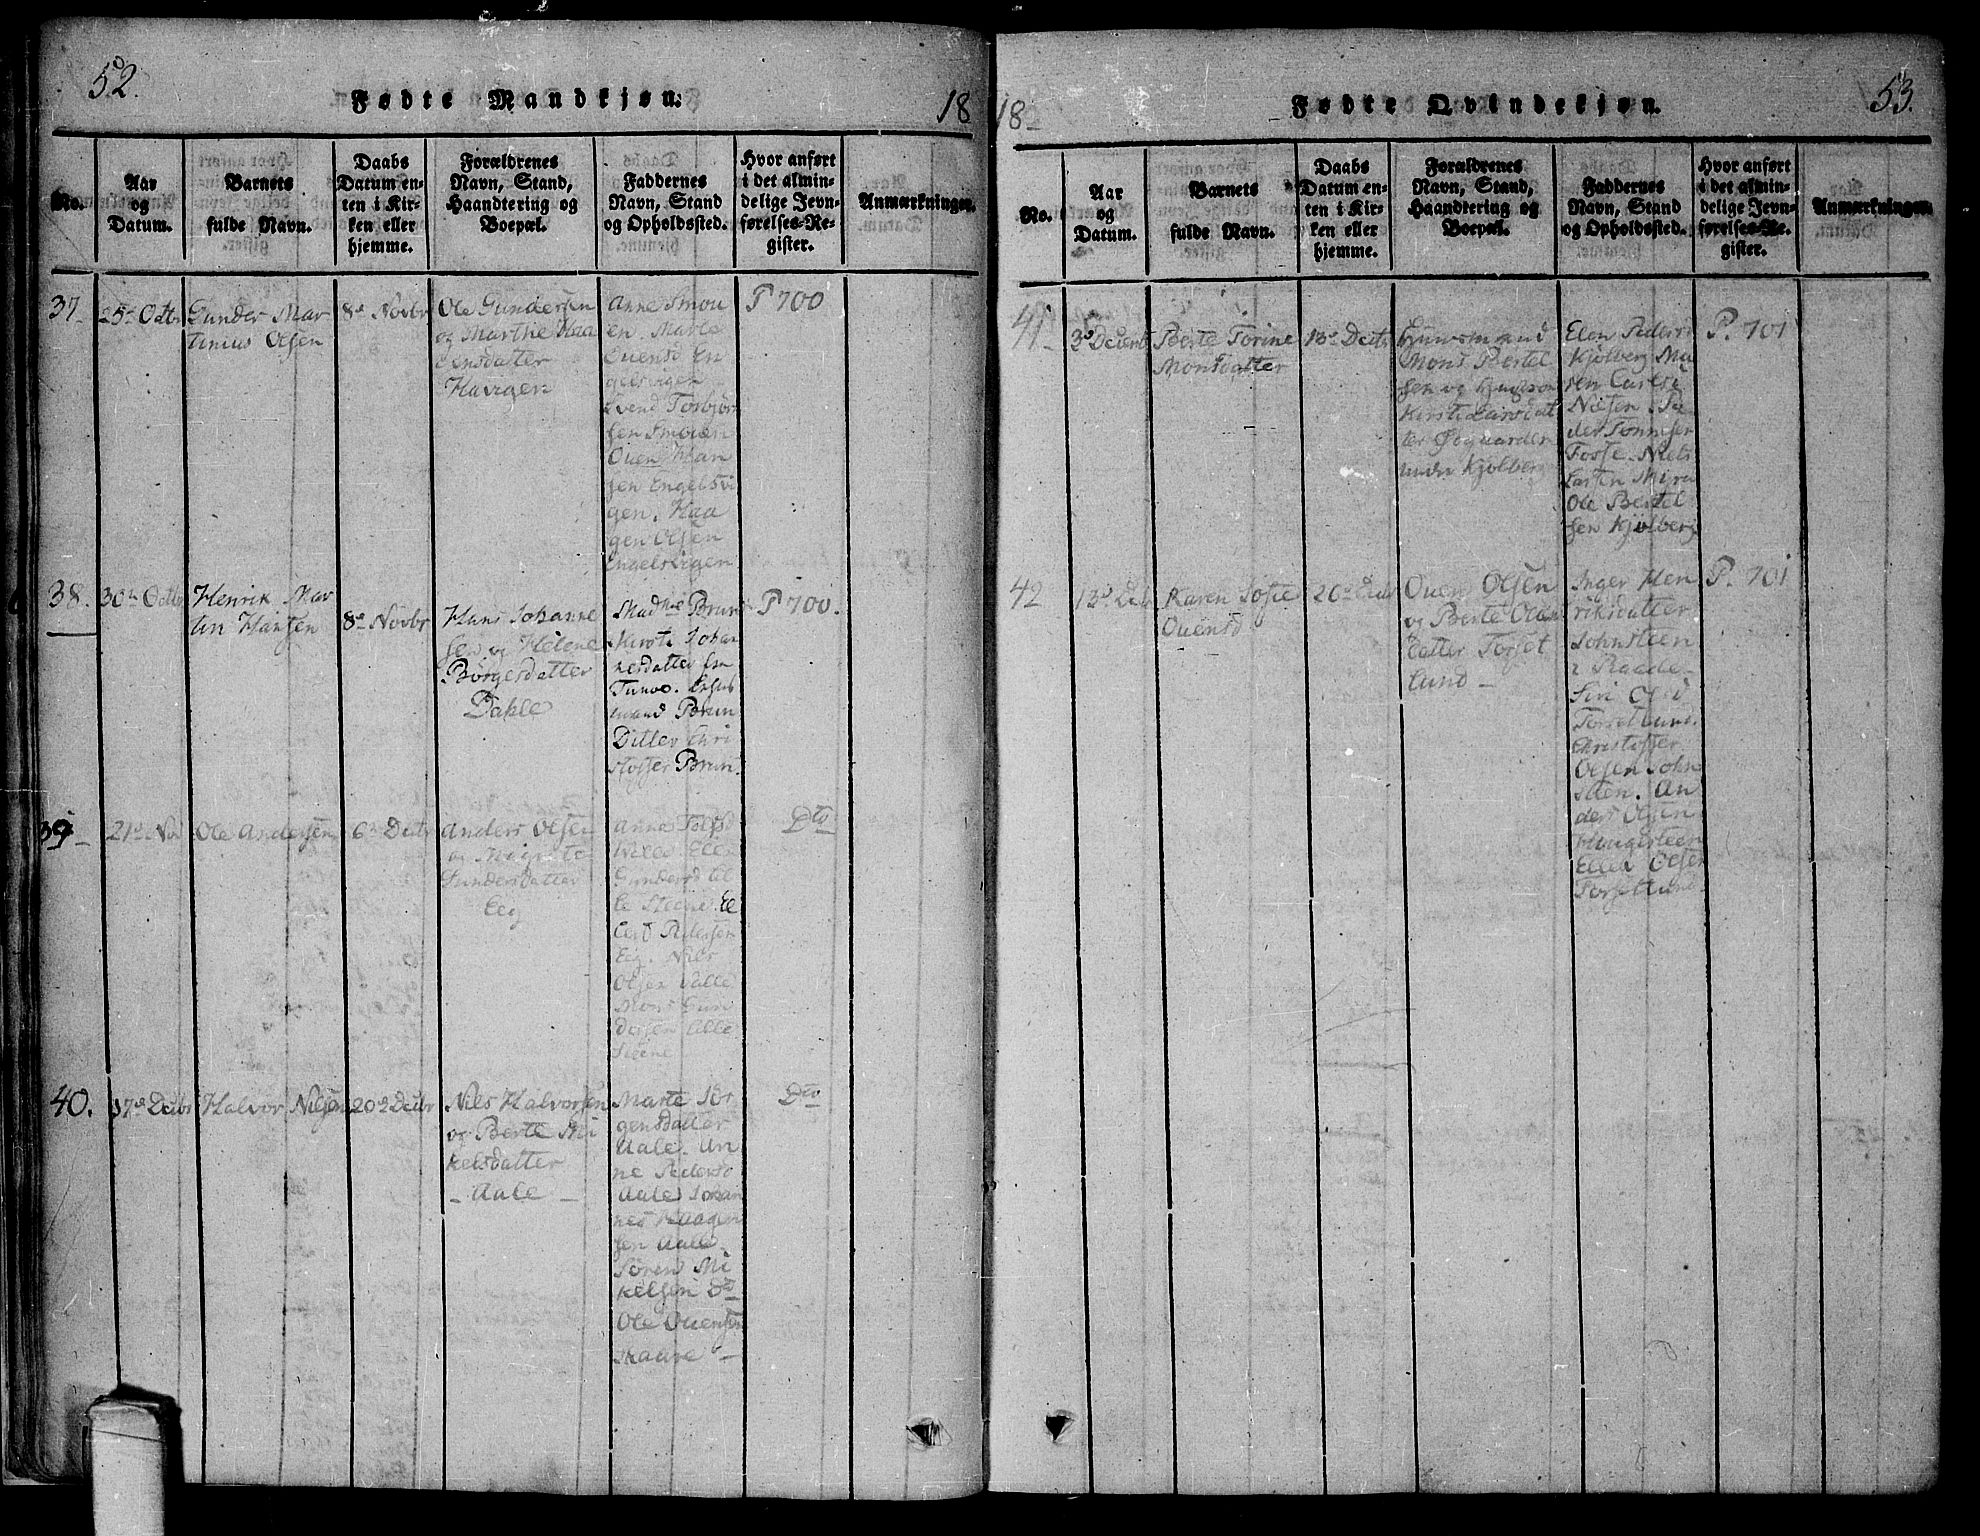 52.
Fødte Mandkjøn.
18
No.
Aar
og
Datum.
Barnets
fulde Navn.
Daabs
Datum en-
ten i Kir-
ken eller
hjemme.
Forældrenes
Navn, Stand,
Haandtering og
Boepæl.
Faddernes
Navn, Stand
og Opholdssted.
Hvor anført
i det almin-
delige Jevn-
førelses-Re-
gister.
Anmærkninger.
37
25de Octbr
Gunder Mar
tinius Olsen
8de Novbr
Ole Gundersen
og Marthe Haa
Havigen
Anne Smou
en. Marte
Ouensd En
gelsvigen
Svend Torbjør
sen Smouen
Ouen Han
sen Engelsvi
gen. Haa
gen Olsen
Engelsvigen
P 700
38.
30te Octbr
Henrik Mar
tin Hansen
8de Novbr
Hans Johanne
sen og Helene
Børgesdatter
Dahle
Mad=e Brun
Kirsti Johan
nesdatter
Tunøe.
mand Brun
Ditlev Chri
stoffer Brun.
P 700.
39
21de Nov
Ole Andersen
6te Decbr
Anders Olsen
og
Gundersdatter
Eeg
Anne
Gundersd lil
le Steene. El
lert Pedersen
Eeg. Niels
Olsen Dalle
Mons Gun
dersen Lille
Steene
Dto
40.
17de Decbr
Halvor Nilsen
20de Decbr
Nils Halvorsen
og Berte Mi
kelsdatter
- Aale -
Marte Jør
gensdatter
Aale. An
ne Pedersd
Aale Johan
nes Haagen
sen Aale.
Søren Mi
kelsen Do
Ole Ouensen
Skaare -
Dto
18
Fødte Qvindekjøn.
53.
No.
Aar
og
Datum.
Barnets
fulde Navn.
Daabs
Datum en-
ten i Kir-
ken eller
hjemme.
Forældrenes
Navn, Stand,
Haandtering og
Boepæl.
Faddernes
Navn, Stand
og Opholdssted.
Hvor anført
i det almin-
delige Jevn-
førelses-Re-
gister.
Anmærkninger.
41
3de Decembr
Berte Torine
Monsdatter
13de Decbr
Huusmand
Mons Bertel
sen og
Kirsti Larsdat
ter Øegaarden
under Kjølberg
Elen Peders
Kjølberg Ma
ren Carls
Næsen. Pe
der Tønnesen
Fosse. Niels
Larsen Myra
Ole Bertel
sen Kjølberg
P. 701
42
13de Decbr
Karen Sofie
Ouensd
26de Decbr
Ouen Olsen
og Berte Olas
datter Torset
lund -
Inger Hen
riksdatter
Johnsteen
i Raade.
Siri Olsd
Torsetlund.
Christoffer
Olsen John
steen. An
ders Olsen
Hungersteen
Ellen Olsen
Torsetlund
P. 701